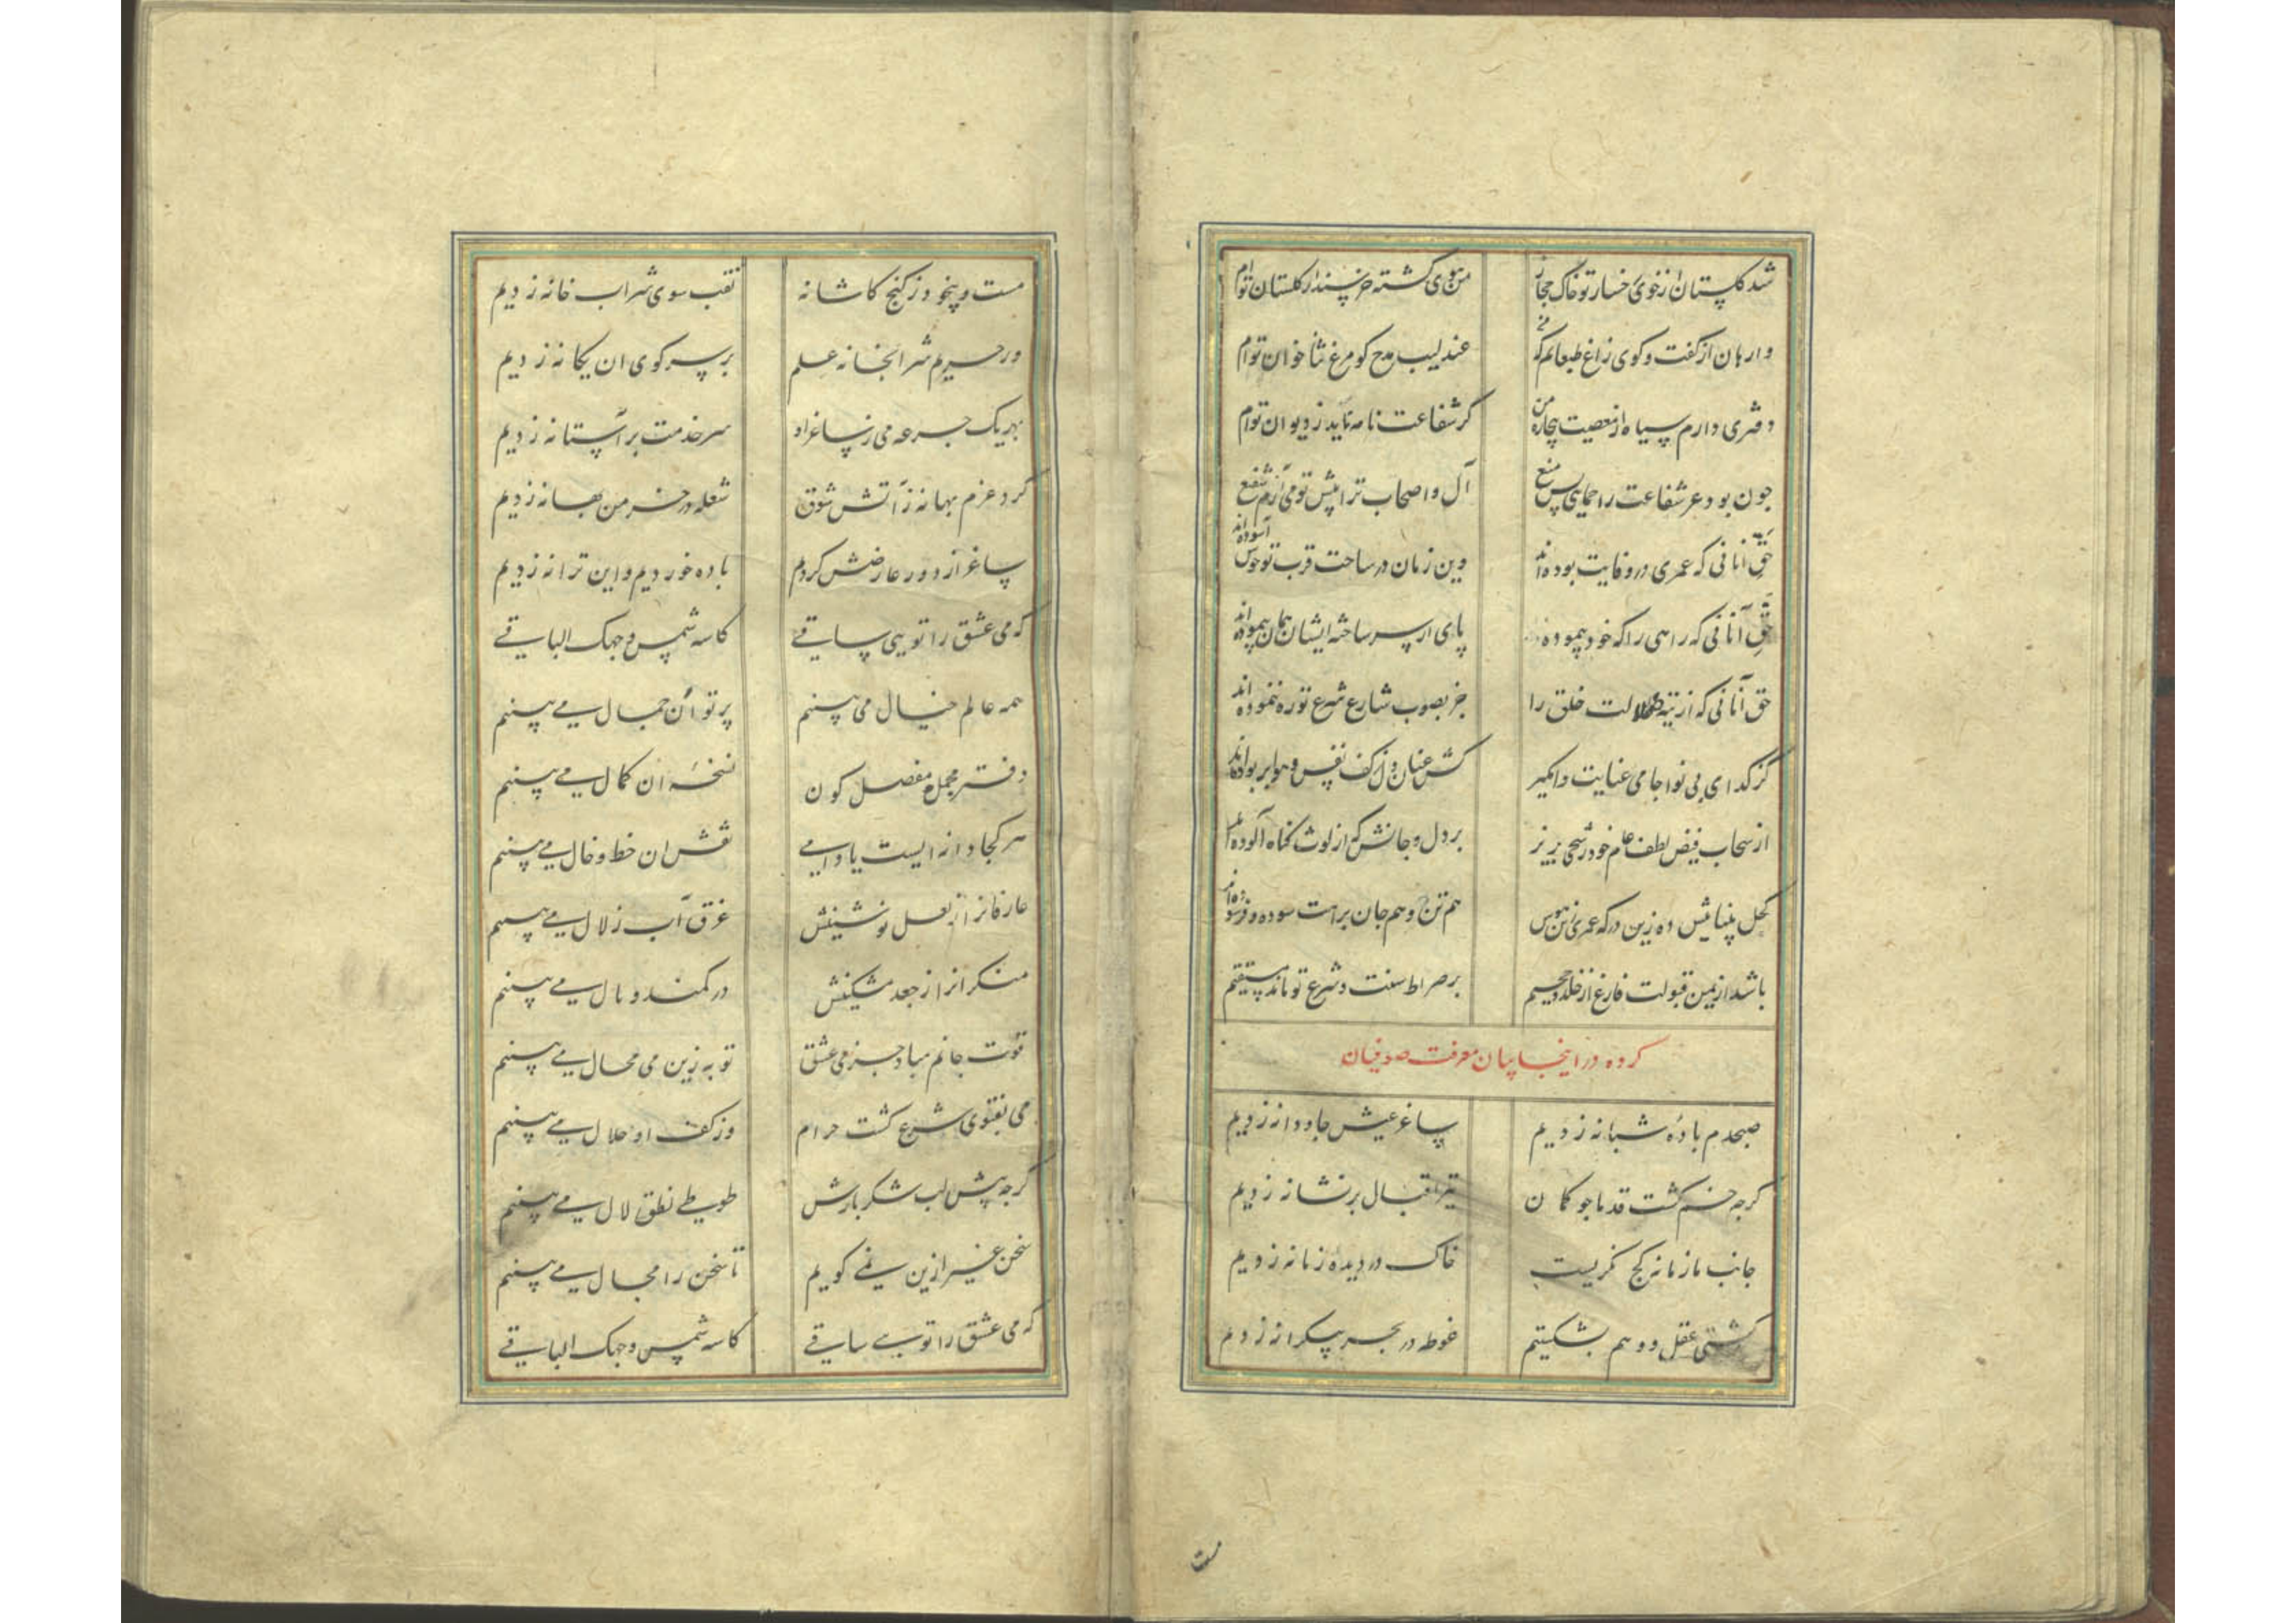 شد گلستان از خوی رخسار تو خاک حجاز من بوی گشته خرسند از گلستان توام
وارهان از گفت و گوی زاغ طبعانم که من عندلیب مدح گو مرغ ثنا خوان توام
دفتری دارم سیاه از معصیت بیچاره من گر شفاعت نامه ناید ز دیوان توام
جون بود عر شفاعت را حمای پس منع آل و اصحاب ترا پیش تو می آرم شفیع
حق آنانی که عمری در وفایت بوده اند وین زمان در ساحت قرب تو خوش آسوده اند
حق آنانی که راهی را که خود پیموده پای از سر ساخته ایشان همان پیموده اند
حق آنانی که از تیه ضلالت خلق را جز بصوب شارع شرع تو ره ننموده اند
کز گدای بی نوا جامی عنایت وامگیر کش عنان دل ز کف نفس و هوا بربوده اند
از سحاب فیض لطف عام خود رشحی بریز بر دل و جانش که از لوث گناه آلوده اند
کحل بیناییش ده زین درگه عمری زین هوس هم تن و هم جان براهت سوده و فرسوده اند
باشد از یمن قبولت فارغ از خلد و جحیم بر صراط سنت و شرع تو ماند مستقیم
کرده در اینجا بیان معرفت صوفیان
صبحدم بادهٔ شبانه زدیم ساغر عیش جاودانه زدیم
گرجه خم گشت قد ما جو کمان تیر اقبال بر نشانه زدیم
جانب ما زمانه کج نگریست خاک در دیدهٔ زمانه زدیم
کشتی عقل و وهم بشکستیم غوطه در بحر بیکرانه زدیم
مست
مست و بیخود ز کنج کاشانه نقب سوی شراب خانه زدیم
در حریم شرابخانه علم بر سر کوی ان یگانه زدیم
بهر یک جرعه می ز ساغر او سر خدمت بر آستانه زدیم
کرد عزم بهانه ز آتش شوق شعله در خرمن بهانه زدیم
ساغر از دور عارضش کردم باده خوردیم و این ترانه زدیم
که می عشق را تویی ساقی کاسه شمس وجهک الباقی
همه عالم خیال می بینم پرتو آن جمال می بینم
دفتر مجمل و مفصل کون نسخهٔ ان کمال می بینم
هر کجا دانه ایست یا دامی نقش ان خط و خال می بینم
عارفانرا ز لعل نوشینش غرق آب زلال می بینم
منکرانرا ز جعد مشکینش در کمند وبال می بینم
قوت جانم مباد جز می عشق توبه زین می محال می بینم
می بفتوی شرع گشت حرام وز کف او حلال می بینم
گرجه پیش لب شکر بارش طوطی نطق لال می بینم
سخن غیر ازین نمی گویم تا سخن را مجال می بینم
که می عشق را تویی ساقی کاسه شمس وجهک الباقی